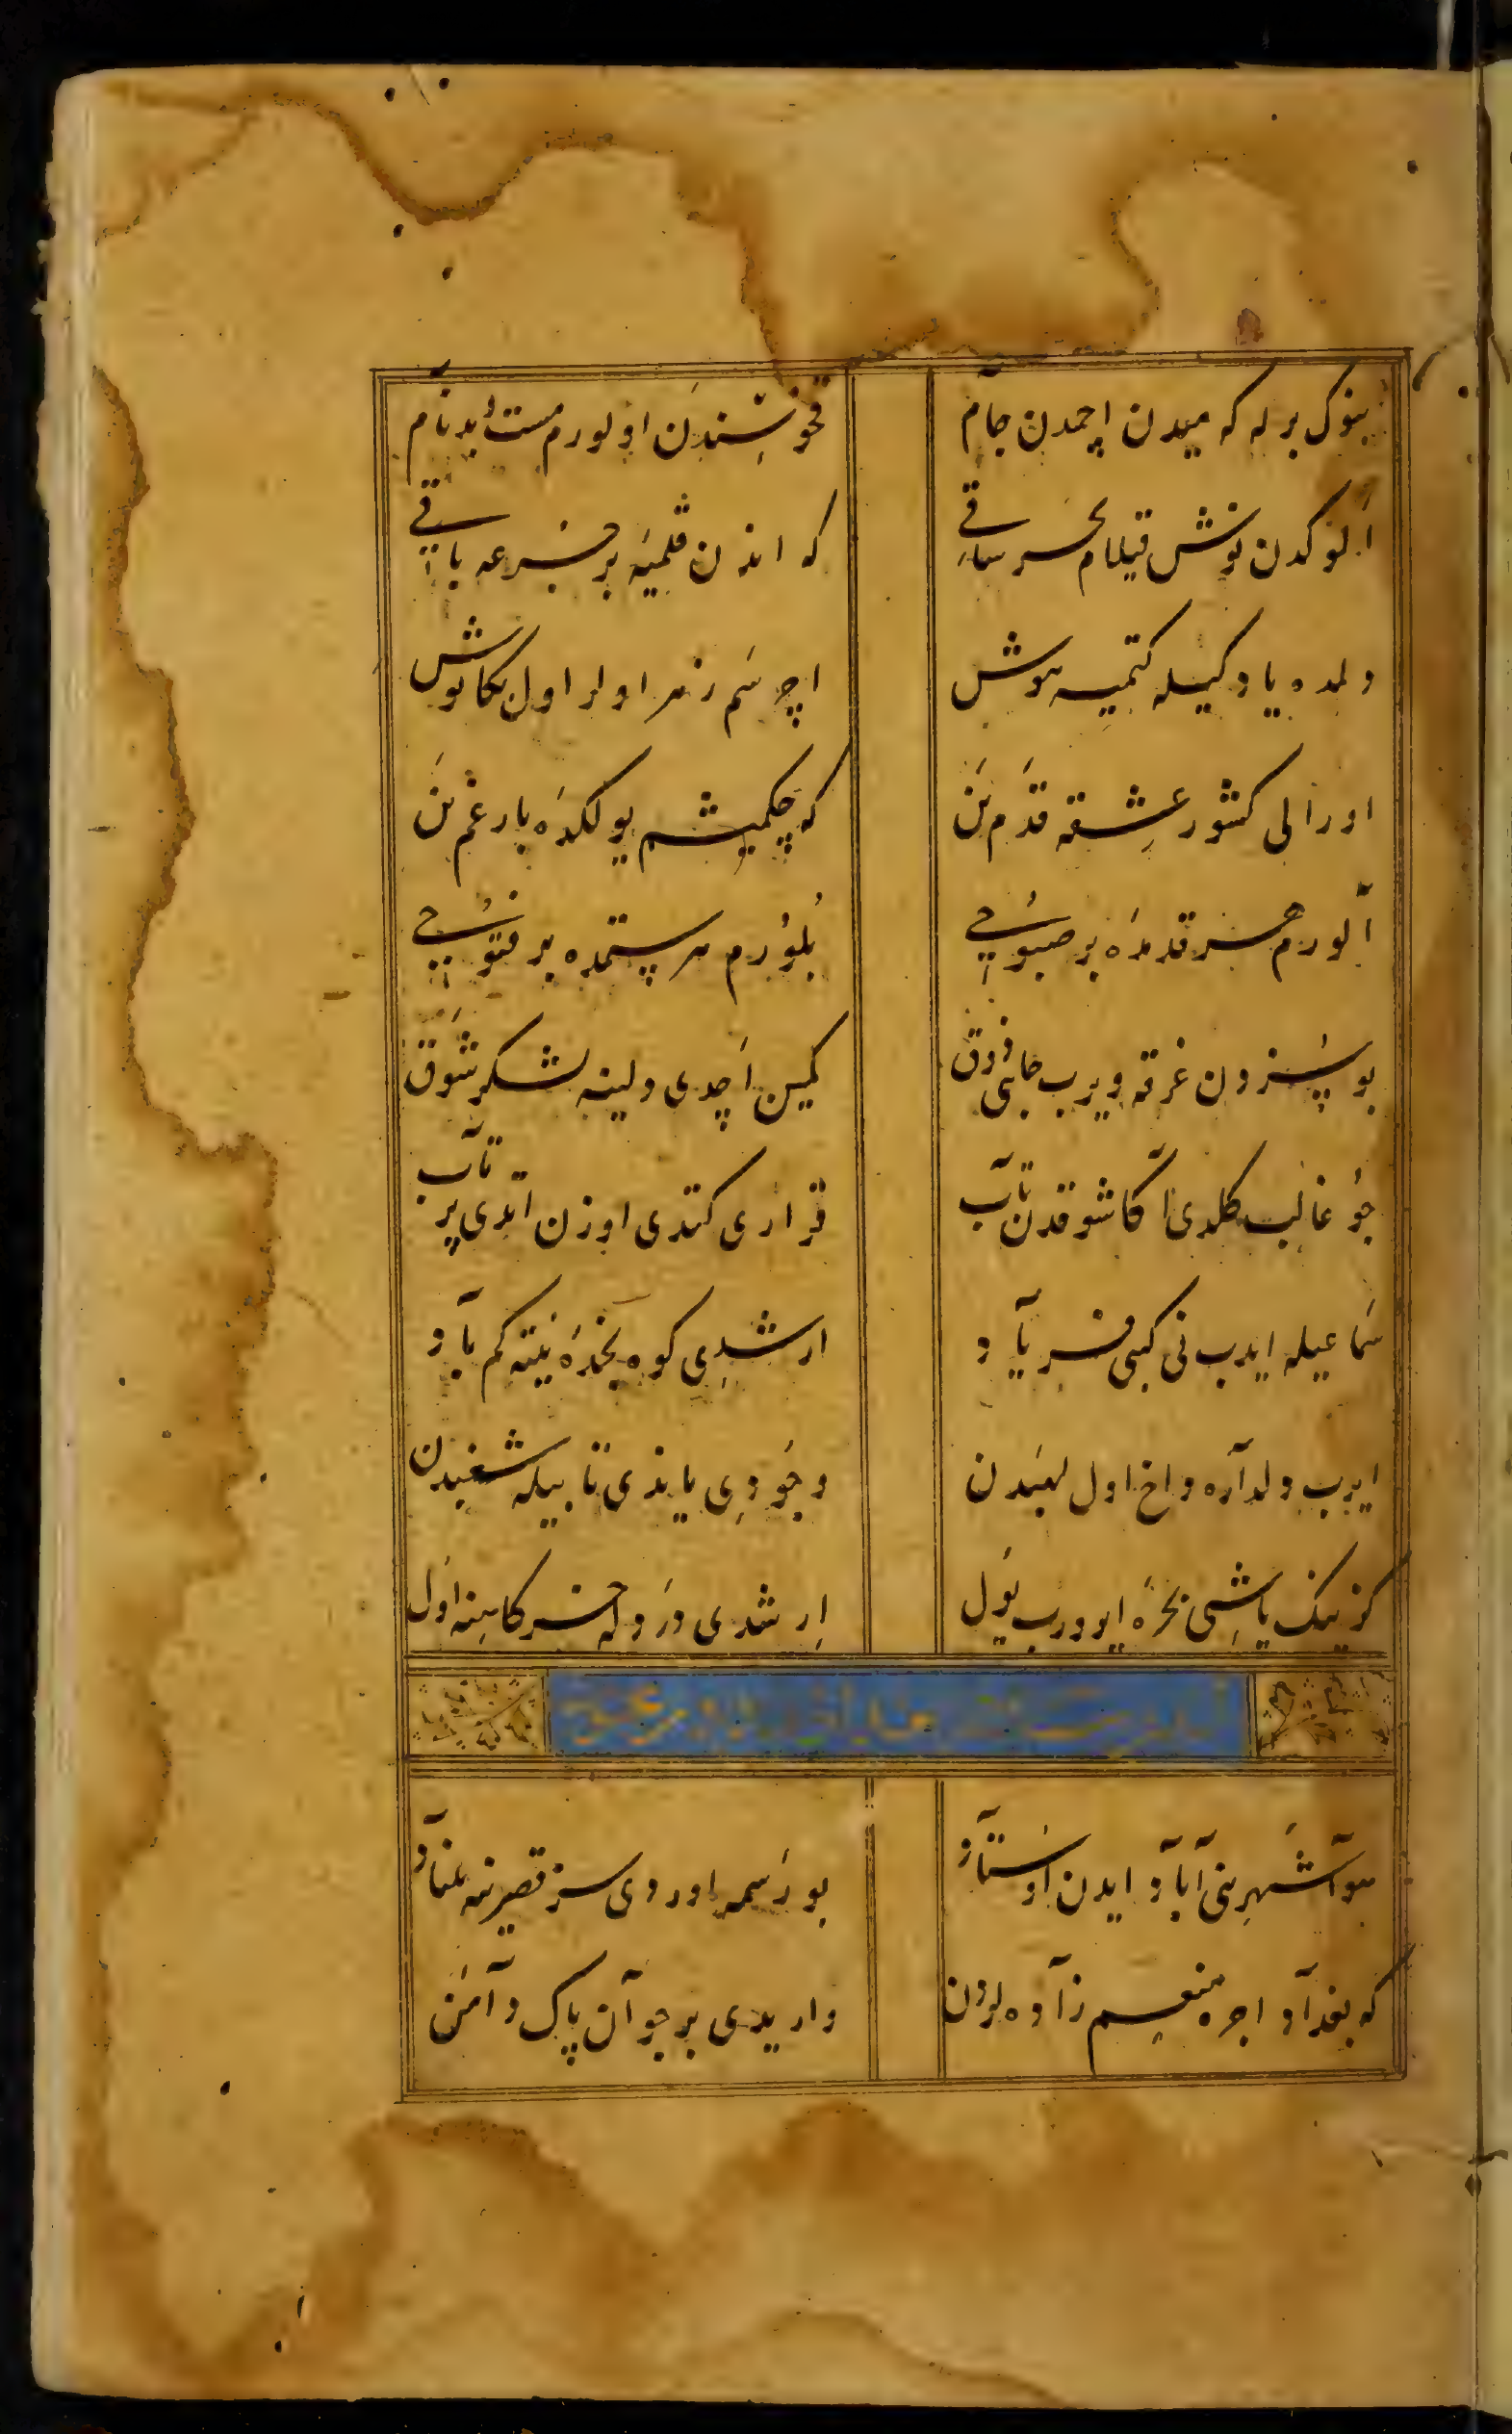 بنوک برله که میدن اچمدن جآم
قخوسِندَن اولورم مست بدنآم
اَلوکدن نوش قیلام بحر ساقی
که اندن قلمیَه بر جرعه باقی
دلمده یاد کیله کتمیه هوش
اچرسَم زهر اولر اول بکا نوش
اورالی کشور عِشقه قدَم بَن
که چکمیشم یولکدَه بار غم بَن
آلورم هر قدمدَه بر صبوُحی
بُلوُرم هر ستمده بر فتوُحی
بو سُزدن غرقه ویرب جانی ذوق
کمین اَچدی دلینه لشکر شَوق
چوُ غالب کلدی اکا شوقدن تآب
قراری کتدی اوزن اتدی پرتآب
سَماعیله ایدب نی کبی فریآد
ارشدِی کوه بخدَه نیته کم بآد
ایرب ولدآره داخ اول بعیدن
وجوُدِی یاندی تابیله شغبدن
کزینک یاشِی بحرَه ایوورب یَول
اِرشدی دَرد له خسرکاهنه اوَل
سوآ شَهرِنی آبآد ایدن اوُستآد
بو رَسمه اوردی سز قصرینه بنآد
که بغدآد اجره منعِم زآده لردن
واریدی بر جوآن پاک دآمَن